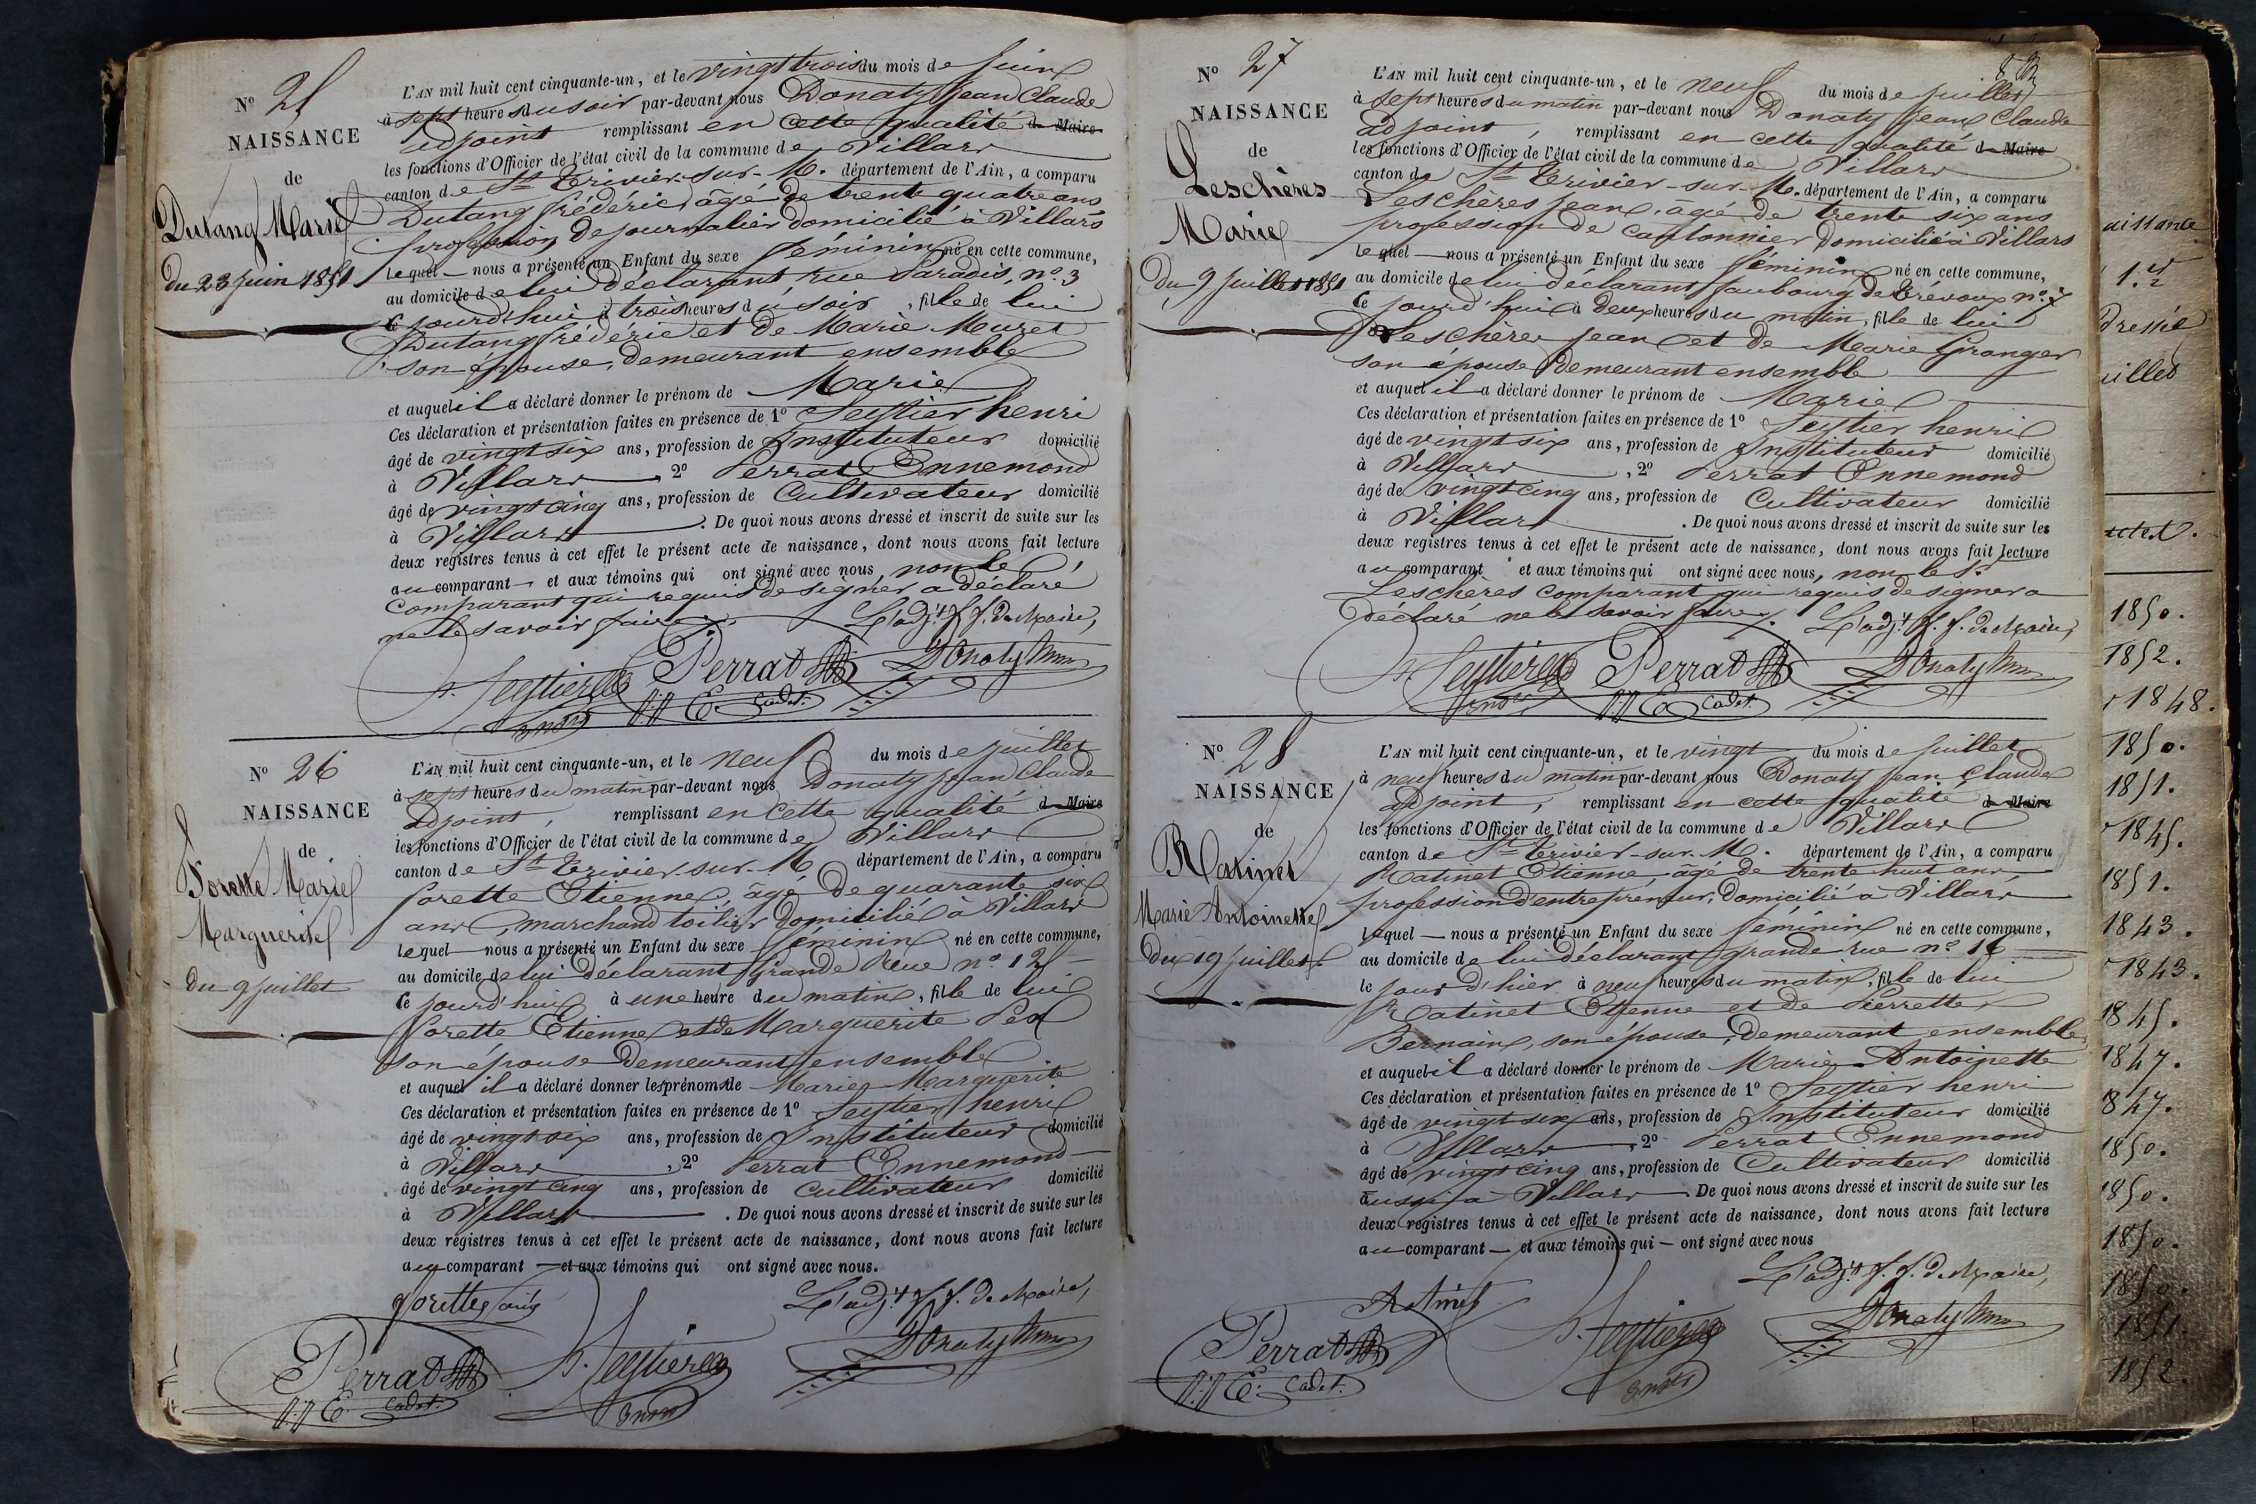 N° 25
NAISSANCE
de
Dutang Marie
du 23 juin 1851
L'AN mil huit cent cinquante-un, et le vingt trois du mois de juin
à sept heures du soir par-devant nous Donaty Jean Claude
adjoint remplissant en cette qualité d Maire
les fonctions d'Officier de l'état civil de la commune de Villars
canton de St Trivier-sur-M. département de l'Ain, a comparu
Dutang frédéric, âgé de trente quatre ans
profession de journalier domicilié à Villars
lequel — nous a présenté un Enfant du sexe féminin né en cette commune,
au domicile de lui déclarant, rue Paradis, n° 3
ce jourd'hui à trois heures du soir, fille de lui
Dutang frédéric et de Marie Muzet
son épouse, demeurant ensemble
et auquel il a déclaré donner le prénom de Marie
Ces déclaration et présentation faites en présence de 1° Seytier henri
âgé de vingt six ans, profession de Instituteur domicilié
à Villars, 2° Perrat Ennemond
âgé de vingt cinq ans, profession de Cultivateur domicilié
à Villars. De quoi nous avons dressé et inscrit de suite sur les
deux registres tenus à cet effet le présent acte de naissance, dont nous avons fait lecture
au comparant — et aux témoins qui ont signé avec nous non le
comparant qui requis de signer a déclaré
ne le savoir faire
L'adj.t f. f. de Maire,
h. Seytier Perrat Donaty
E. Cadet.
N° 26
NAISSANCE
de
Forette Marie
Marguerite
du 9 juillet
L'AN mil huit cent cinquante-un, et le neuf du mois de juillet
à sept heures du matin par-devant nous Donaty Jean Claude
adjoint, remplissant en cette qualité d Maire
les fonctions d'Officier de l'état civil de la commune de Villars
canton de St Trivier-sur-M. département de l'Ain, a comparu
forette Etienne, âgé de quarante six
ans, marchand toilier domicilié à Villars
lequel — nous a présenté un Enfant du sexe féminin né en cette commune,
au domicile de lui déclarant Grande Rue n° 12
Ce jourd'hui à une heure du matin, fille de lui
forette Etienne et de Marguerite
son épouse demeurant ensemble
et auquel il a déclaré donner les prénoms de Marie Marguerite
Ces déclaration et présentation faites en présence de 1° Seytier henri
âgé de vingt six ans, profession de Instituteur domicilié
à Villars, 2° Perrat Ennemond
âgé de vingt cinq ans, profession de cultivateur domicilié
à Villars. De quoi nous avons dressé et inscrit de suite sur les
deux registres tenus à cet effet le présent acte de naissance, dont nous avons fait lecture
au comparant — et aux témoins qui ont signé avec nous.
forette L'adj.t f. f. de Maire,
Perrat h. Seytier Donaty
E. Cadet.
N° 27
NAISSANCE
de
Leschères
Marie
du 9 juillet 1851
L'AN mil huit cent cinquante-un, et le neuf du mois de juillet
à sept heures du matin par-devant nous Donaty Jean Claude
adjoint, remplissant en cette qualité d Maire
les fonctions d'Officier de l'état civil de la commune de Villars
canton de St Trivier-sur-M. département de l'Ain, a comparu
Leschères Jean, âgé de trente six ans
profession de cantonnier domicilié à Villars
lequel — nous a présenté un Enfant du sexe féminin né en cette commune,
au domicile de lui déclarant faubourg de Trévoux n° 7
Ce jourd'hui à deux heures du matin, fille de lui
Leschères Jean et de Marie Granger
son épouse demeurant ensemble
et auquel il a déclaré donner le prénom de Marie
Ces déclaration et présentation faites en présence de 1° Seytier henri
âgé de vingt six ans, profession de Instituteur domicilié
à Villars, 2° Perrat Ennemond
âgé de vingt cinq ans, profession de Cultivateur domicilié
à Villars. De quoi nous avons dressé et inscrit de suite sur les
deux registres tenus à cet effet le présent acte de naissance, dont nous avons fait lecture
au comparant et aux témoins qui ont signé avec nous, non le s.r
Leschères comparant qui requis de signer a
déclaré ne le savoir faire
L'adj.t f. f. de Maire,
h. Seytier Perrat Donaty
E. Cadet.
N° 28
NAISSANCE
de
Ratinet
Marie Antoinette
du 19 juillet
L'AN mil huit cent cinquante-un, et le vingt du mois de juillet
à neuf heures du matin par-devant nous Donaty Jean Claude
adjoint, remplissant en cette qualité d Maire
les fonctions d'Officier de l'état civil de la commune de Villars
canton de St Trivier-sur-M. département de l'Ain, a comparu
Ratinet Etienne âgé de trente huit ans,
profession d'entrepreneur, domicilié à Villars
lequel — nous a présenté un Enfant du sexe féminin né en cette commune,
au domicile de lui déclarant grande rue n° 16
le jour d'hier à neuf heures du matin, fille de lui
Ratinet Etienne et de Pierrette
Bernain, son épouse, demeurant ensemble
et auquel il a déclaré donner le prénom de Marie Antoinette
Ces déclaration et présentation faites en présence de 1° Seytier henri
âgé de vingt six ans, profession de Instituteur domicilié
à Villars, 2° Perrat Ennemond
âgé de vingt cinq ans, profession de Cultivateur domicilié
aussi à Villars. De quoi nous avons dressé et inscrit de suite sur les
deux registres tenus à cet effet le présent acte de naissance, dont nous avons fait lecture
au comparant — et aux témoins qui — ont signé avec nous
L'adj.t f. f. de Maire,
Ratinet
Perrat h. Seytier Donaty
E. Cadet.
1850.
1852.
1848.
1850.
1851.
1845.
1851.
1843.
1843.
1845.
1847.
1847.
1850.
1850.
1850.
1850.
1851.
1852.